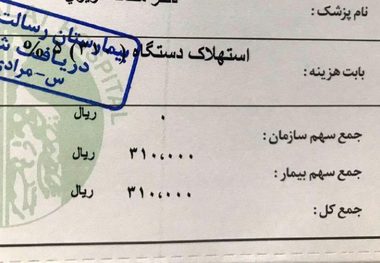 نام پزشک :
بابت هزینه :
استهلاک دستگاه
جمع سهم سازمان : ۰ ریال
جمع سهم بیمار : ۳۱۰,۰۰۰ ریال
جمع کل : ۳۱۰,۰۰۰ ریال
بیمارستان رسالت
دریافت شد
س-مرادی
HOSPITAL